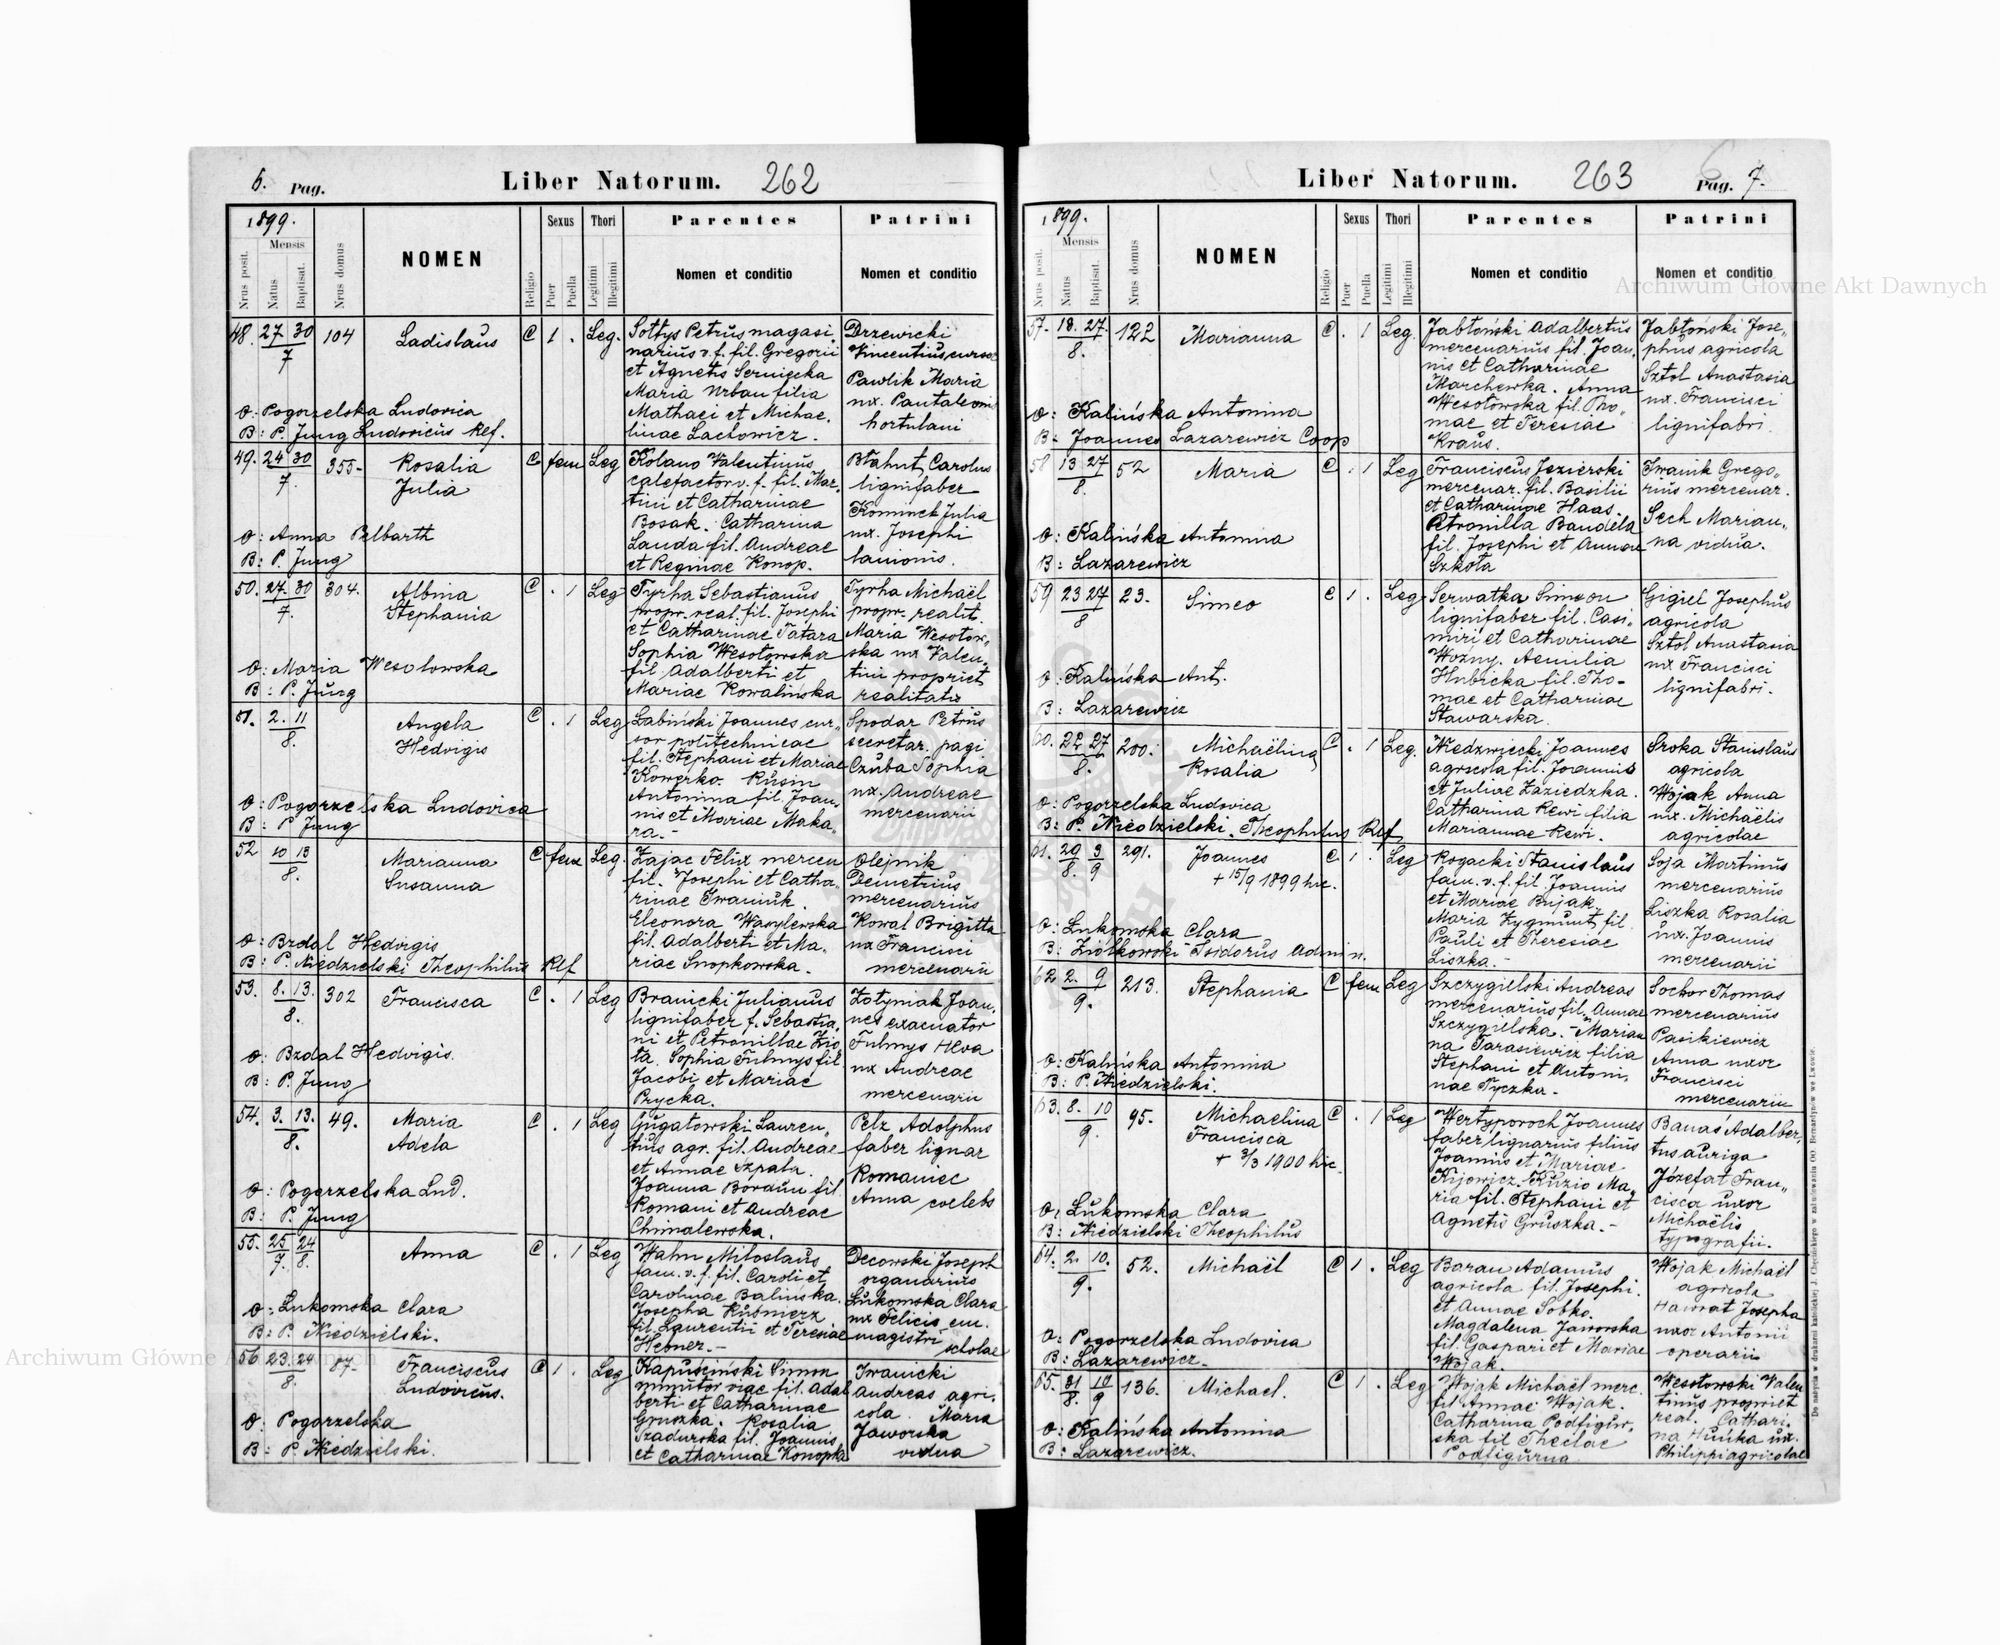 6. Pag. Liber Natorum. 262
1899.
Nrus posit.
Mensis
Natus
Baptisat.
Nrus domus
NOMEN
Religio
Sexus
Puer
Puella
Thori
Legitimi
Illegitimi
Parentes
Nomen et conditio
Patrini
Nomen et conditio
48. 27. 30 104 Ladislaus C 1 . Leg.
7
Sołtys Petrus magasi-
narius v. f. fil. Gregorii
et Agnetis Serniecka
Maria Urban filia
Mathaei et Michae-
linae Lachowicz.
Drzewicki
Vincentius cursor
Pawlik Maria
ux. Pantaleonis
hortulani
O: Pogorzelska Ludovica
B: P. Jung Ludovicus Ref.
49. 24 30 355- Rosalia C fem Leg
7. Julia
Kolano Valentinus
calefactor v. f. fil. Mar-
tini et Catharinae
Bosak. Catharina
Landa fil. Andreae
et Reginae Konop.
Błahut Carolus
lignifaber
Kominek Julia
ux. Josephi
lanionis.
O: Anna Pelbarth
B: P. Jung
50. 27. 30 304. Albina C . 1 Leg
7. Stephania
Tyrha Sebastianus
propr. real. fil. Josephi
et Catharinae Tatara
Sophia Wesołowska
fil Adalberti et
Mariae Kowalińska
Tyrha Michaël
propr. realit.
Maria Wesołow-
ska ux Valen-
tini propriet
realitatis
O: Maria Wesołowska
B: P. Jung
51. 2. 11 Angela C . 1 Leg
8. Hedvigis
Łabiński Joannes cur-
sor politechnicae
fil. Stephani et Mariae
Kowerko. Rusin
Antonina fil. Joan-
nis et Mariae Maka-
ra.-
Spodar Petrus
secretar. pagi
Czuba Sophia
ux. Andreae
mercenarii
O: Pogorzelska Ludovica
B: P Jung
52 10 13 Marianna C fem Leg.
8. Susanna
Zając Felix mercen
fil. Josephi et Catha-
rinae Iwaniuk.
Eleonora Wasylewska
fil. Adalberti et Ma-
riae Snopkowska.
Olejnik
Demetrius
mercenarius
Kowal Brigitta
ux Francisci
mercenarii
O: Bzdal Hedvigis
B: P. Niedzielski Theophilus Ref
53. 8. 13. 302 Francisca C . 1 Leg
8.
Branicki Julianus
lignifaber f. Sebastia-
ni et Petronillae Zło-
ta. Sophia Fulmys fil
Jacobi et Mariae
Prycka.
Żołyniak Joan-
nes exacuator
Fulmys Heva
ux Andreae
mercenarii
O: Bzdal Hedvigis.
B: P. Jung
54. 3. 13. 49. Maria C . 1 Leg
8. Adela
Gugałowski Lauren-
tius agr. fil. Andreae
et Annae Szpala.
Joanna Bordun fil.
Romani et Andreae
Chmalewska.
Pelz Adolphus
faber lignar
Romaniec
Anna coelebs
O: Pogorzelska Lud.
B: P. Jung
55. 25 24 Anna C . 1 Leg
7. 8.
Wahn Miloslaus
fam. v. f. fil. Caroli et
Carolinae Balińska.
Josepha Kuśnierz
fil. Laurentii et Teresiae
Hebner.-
Decowski Joseph
organarius
Łukomska Clara
ux Felicis em.
magistri scholae
O: Łukomska Clara
B: P. Niedzielski.
56 23. 24 87- Franciscus C 1 . Leg
8. Ludovicus.
Kapuściński Simon
munitor viae fil. Adal
berti et Catharinae
Gruszka. Rosalia
Szadurska fil. Joannis
et Catharinae Konopka
Iwanicki
Andreas agri-
cola. Maria
Jaworska
vidua
O: Pogorzelska
B: P. Niedzielski.
Liber Natorum. 263 Pag. 7.
1899.
Nrus posit.
Mensis
Natus
Baptisat.
Nrus domus
NOMEN
Religio
Sexus
Puer
Puella
Thori
Legitimi
Illegitimi
Parentes
Nomen et conditio
Patrini
Nomen et conditio
57. 18. 27. 122 Marianna C . 1 Leg.
8.
Jabłoński Adalbertus
mercenarius fil. Joan-
nis et Catharinae
Marchewka. Anna
Wesołowska fil. Tho-
mae et Teresiae
Kraus.
Jabłoński Jose-
phus agricola
Sztol Anastasia
ux. Francisci
lignifabri.
O: Kalińska Antonina
B: Joannes Lazarewicz Coop
58 13 27 52 Maria C . 1 Leg
8.
Franciscus Jezierski
mercenar. fil. Basilii
et Catharinae Haas.
Petronilla Bandela
fil. Josephi et Annae
Szkoła
Iwanik Grego-
rius mercenar.
Sech Marian-
na vidua.
O: Kalińska Antonina
B: Lazarewicz
59 23 27 23. Simeo C 1 . Leg
8
Serwatka Simeon
lignifaber fil. Casi-
miri et Catharinae
Woźny. Aemilia
Hubicka fil. Tho-
mae et Catharinae
Stawarska.
Gigiel Josephus
agricola
Sztol Anastasia
ux Francisci
lignifabri.
O: Kalińska Ant.
B: Lazarewicz
60. 22 27 200. Michaëlina C . 1 Leg.
8. Rosalia
Niedzwiecki Joannes
agricola fil. Joannis
et Juliae Zaziedzka.
Catharina Rewi filia
Mariannae Rewi.
Sroka Stanislaus
agricola
Wojak Anna
ux. Michaëlis
agricolae
O: Pogorzelska Ludovica
B: P. Niedzielski. Theophilus Ref
61. 29 3 291. Joannes C 1 . Leg
8. 9 + 15/9 1899 hic.
Rogacki Stanislaus
fam. v. f. fil. Joannis
et Mariae Bujak.
Maria Zygmunt fil.
Pauli et Theresiae
Liszka.-
Soja Martinus
mercenarius
Liszka Rosalia
ux. Joannis
mercenarii
O: Łukomska Clara
B: Ziółkowski Isidorus Admin.
62 2. 9 213. Stephania C fem Leg
9.
Szczygielski Andreas
mercenarius fil. Annae
Szczygielska.- Marian
na Tarasiewicz filia
Stephani et Antoni-
nae Tyczka.-
Sochor Thomas
mercenarius
Pasikiewicz
Anna uxor
Francisci
mercenarii
O: Kalińska Antonina
B: P. Niedzielski.
63. 8. 10 95. Michaelina C . 1 Leg
9. Francisca
+ 3/3 1900 hic.
Wertyporoch Joannes
faber lignarius filius
Joannis et Mariae
Kijowicz. Kuzio Ma-
ria fil. Stephani et
Agnetis Gruszka.-
Banaś Adalber-
tus auriga
Józefat Fran-
cisca uxor
Michaëlis
typografii.
O: Łukomska Clara
B: Niedzielski Theophilus
64. 2. 10. 52. Michaël C 1 . Leg
9.
Baran Adamus
agricola fil. Josephi.
et Annae Sobko.
Magdalena Jaworska
fil. Gaspari et Mariae
Wojak.
Wojak Michaël
agricola
Hawrat Josepha
uxor Antonii
operarii
O: Pogorzelska Ludovica
B: Lazarewicz.
65. 31 10 136. Michael. C 1 . Leg
8. 9
Wojak Michaël merc.
fil. Annae Wojak.
Catharina Podfigur-
ska fil Theclae
Podfigurna
Wesołowski Valen
tinus propriet
real. Cathari-
na Huńka ux.
Philippi agricolae
O: Kalińska Antonina
B: Lazarewicz.
De nabycia w drukarni katolickiej J. Chęcińskiego w zabudowaniu OO. Bernardynów we Lwowie.
Archiwum Główne Akt Dawnych
Archiwum Główne Akt Dawnych